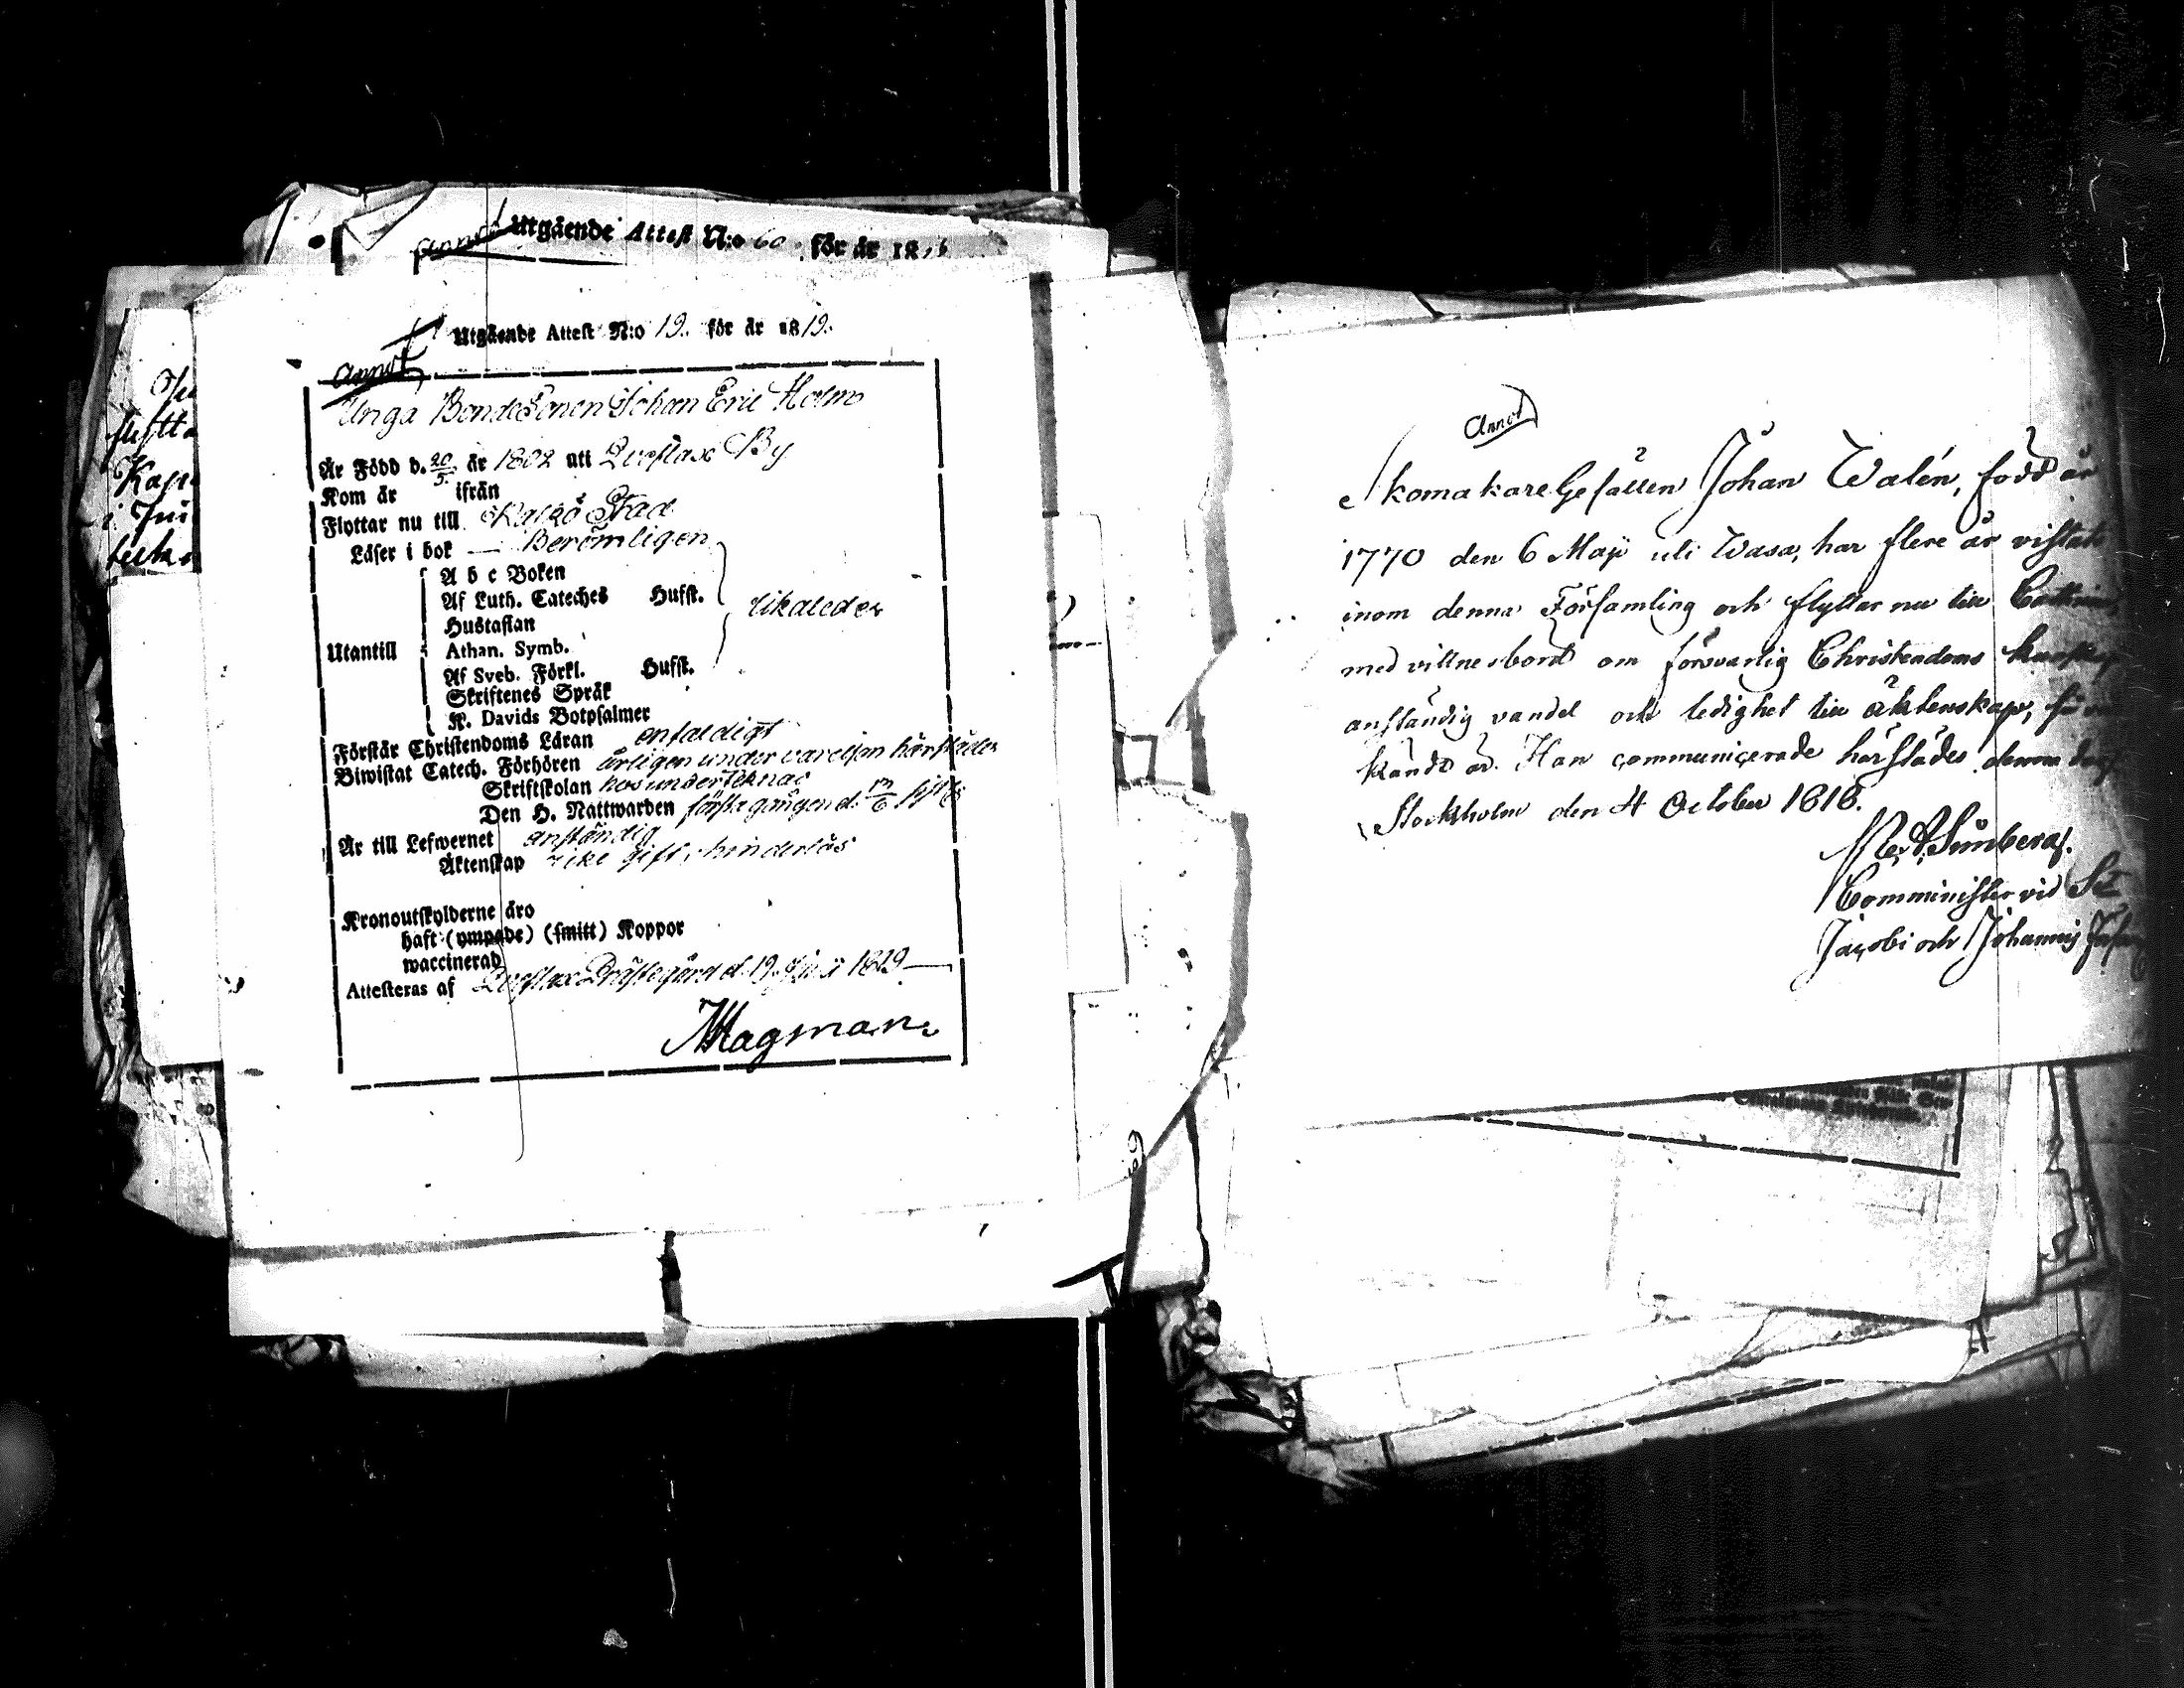 Utgående Attest N:o 60. för år 18
Utgående Attest N:o 19. för år 1819.
Annot
Unga BondeSonen Johan Eric Holm
Är Född d. 20/5. år 1802 uti Qveflax By
Kom år ifrån
Flyttar nu till Kaskö Stad
Läser i bok — Berömligen
A b c Boken
Af Luth. Cateches Hufst.
Hustaflan
likaledes
Utantill
Athan. Symb.
Af Sveb. Förkl. Hufst.
Skriftenes Språk
K. Davids Botpsalmer
Förstår Christendoms Läran enfaldigt
Biwistat Catech. Förhören årligen under varelsen härstädes
Skriftskolan hos underteknad
Den H. Nattwarden första gången d.
Är till Lefwernet anständig
Äktenskap icke gift, hinderlös
Kronoutskylderne äro
haft (ympade) (smitt) Koppor
waccinerad
Attesteras af Qveflax Prästegård d. 19 1819
Hagman
Annot
Skomakare Gesällen Johan Walén, född år
1770 den 6 Maji uti Wasa, har flere år vistats
inom denna Församling och flyttar nu till
med vittnesbord om försvarlig Christendoms
anständig vandel och ledighet till äktenskap, så
kändt är. Han communicerade härstädes denna dag.
Stockholm den 4 October 1818.
Sunberg.
Comminister vid S:t
Jacobi och Johannis